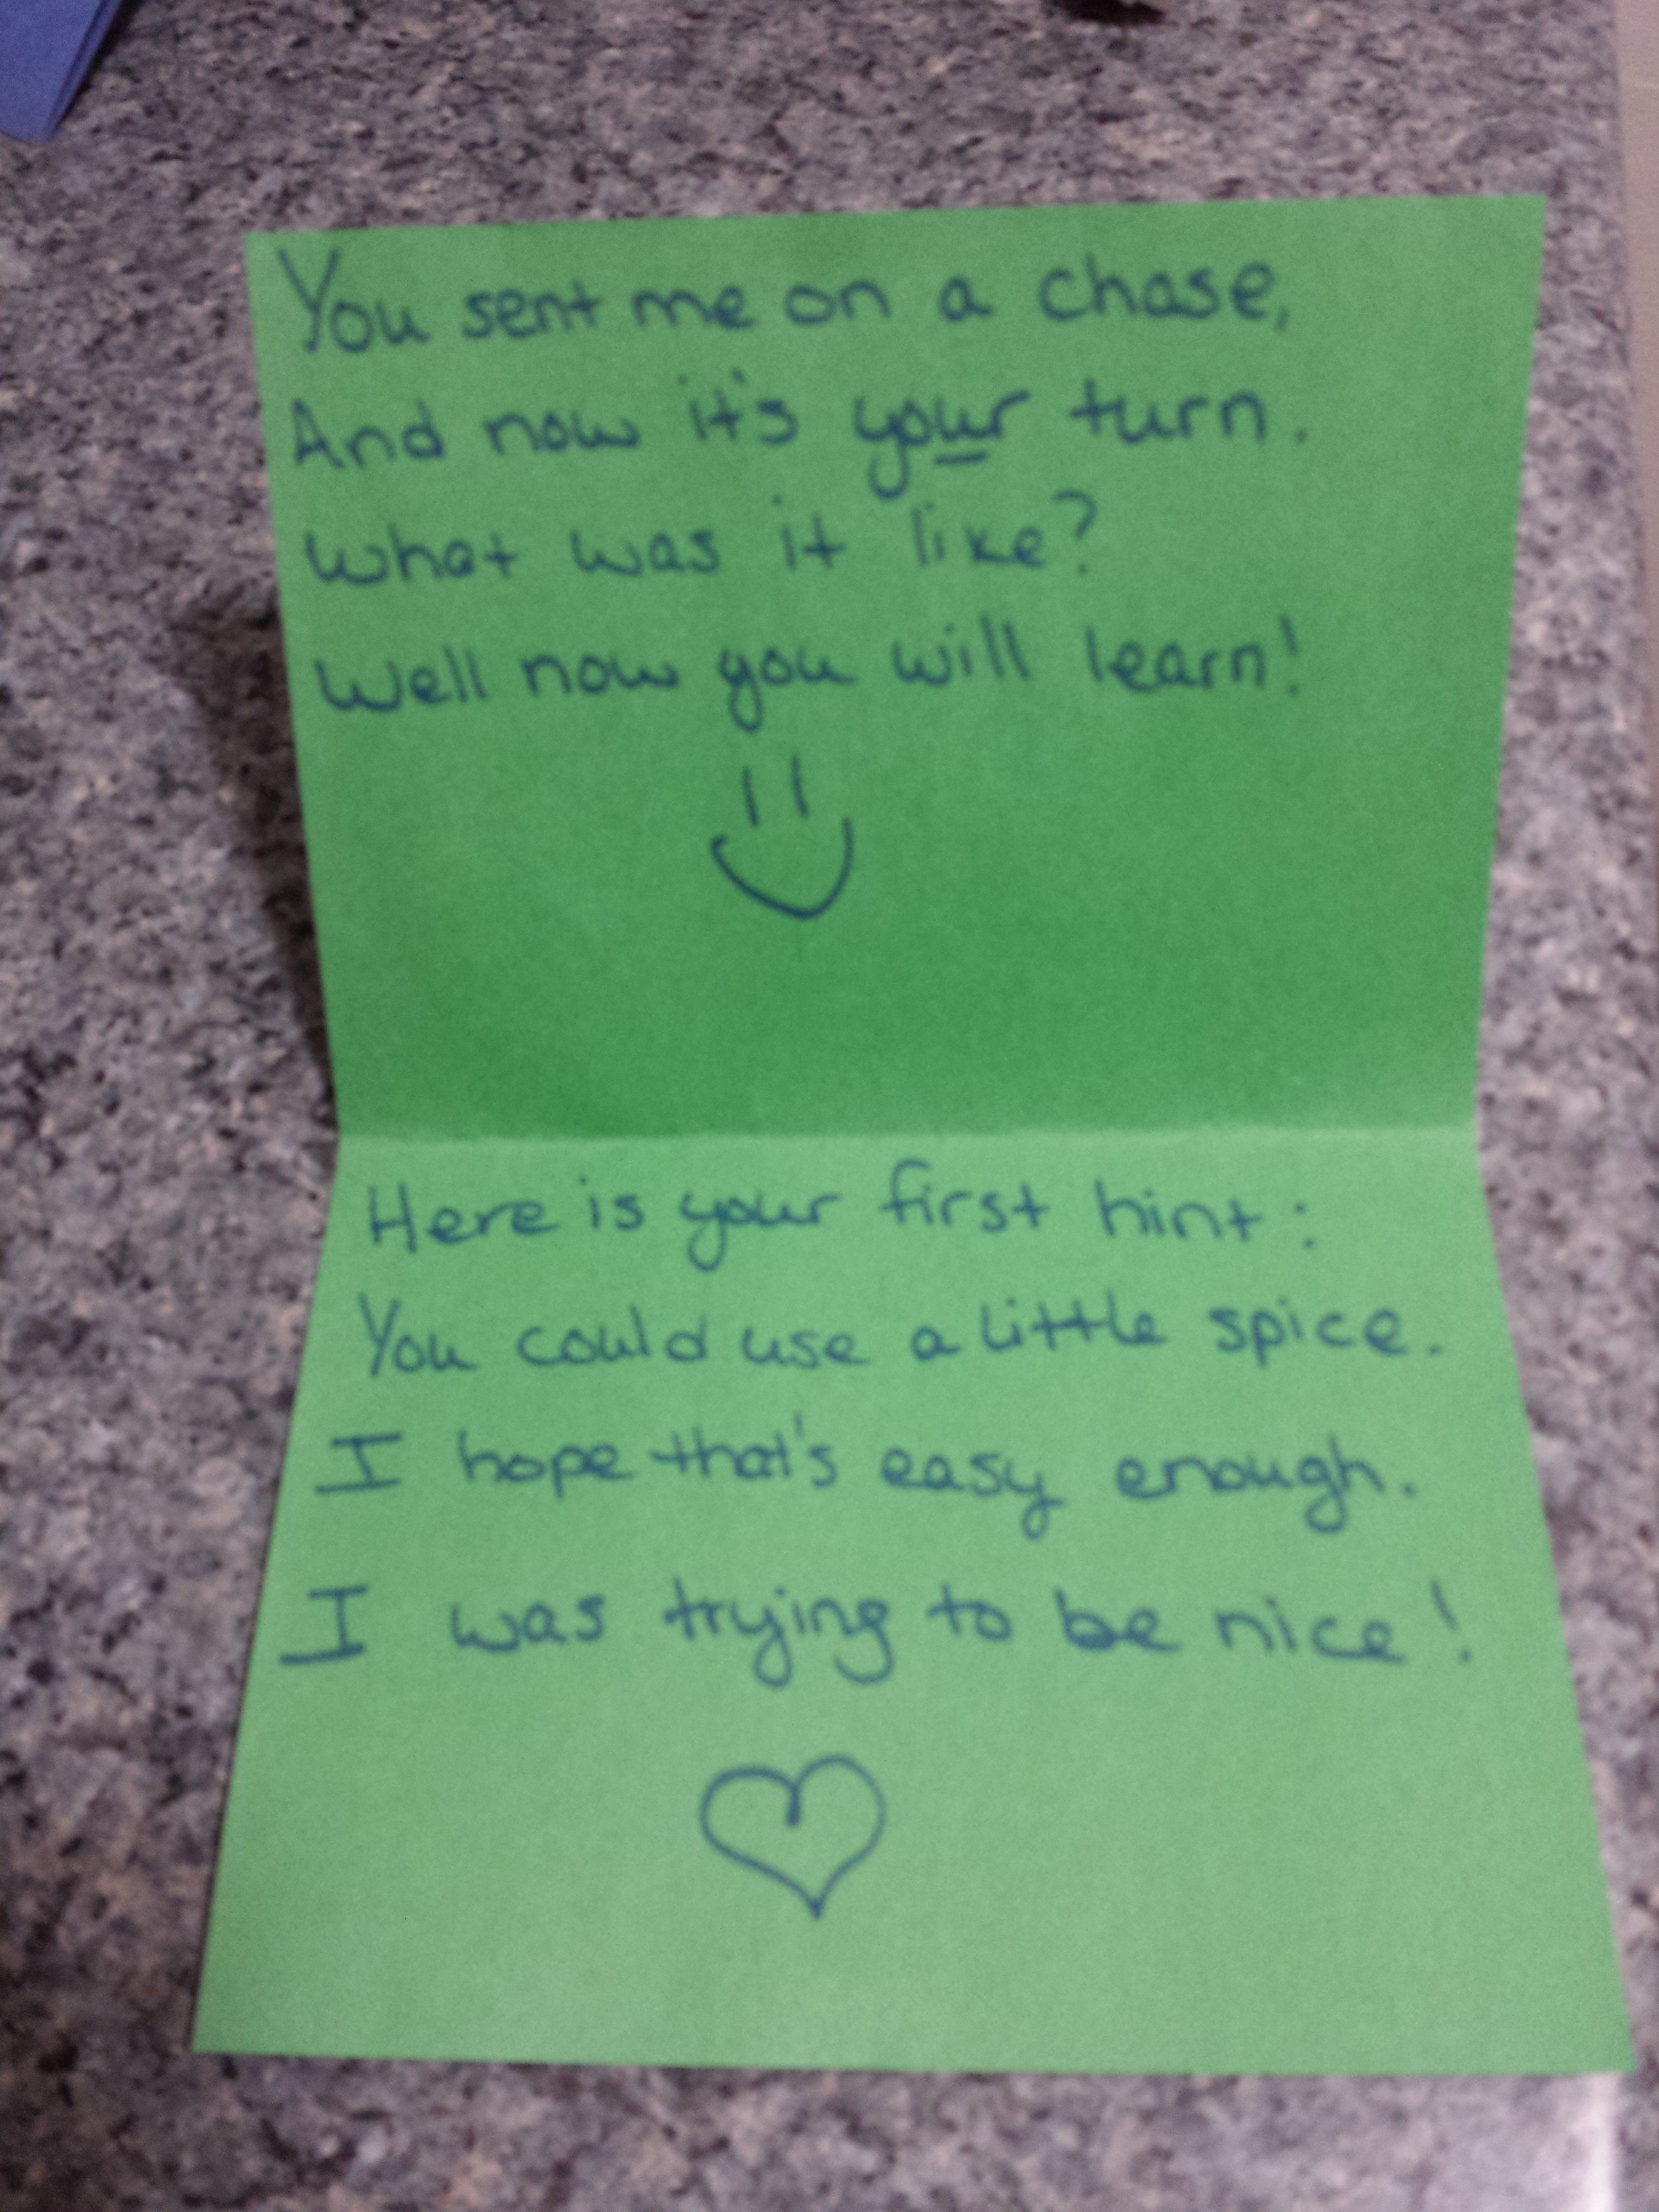 You sent me on a chase,
And now it's your turn.
What was it like?
Well now you will learn!
Here is your first hint:
You could use a little spice.
I hope that's easy enough.
I was trying to be nice!